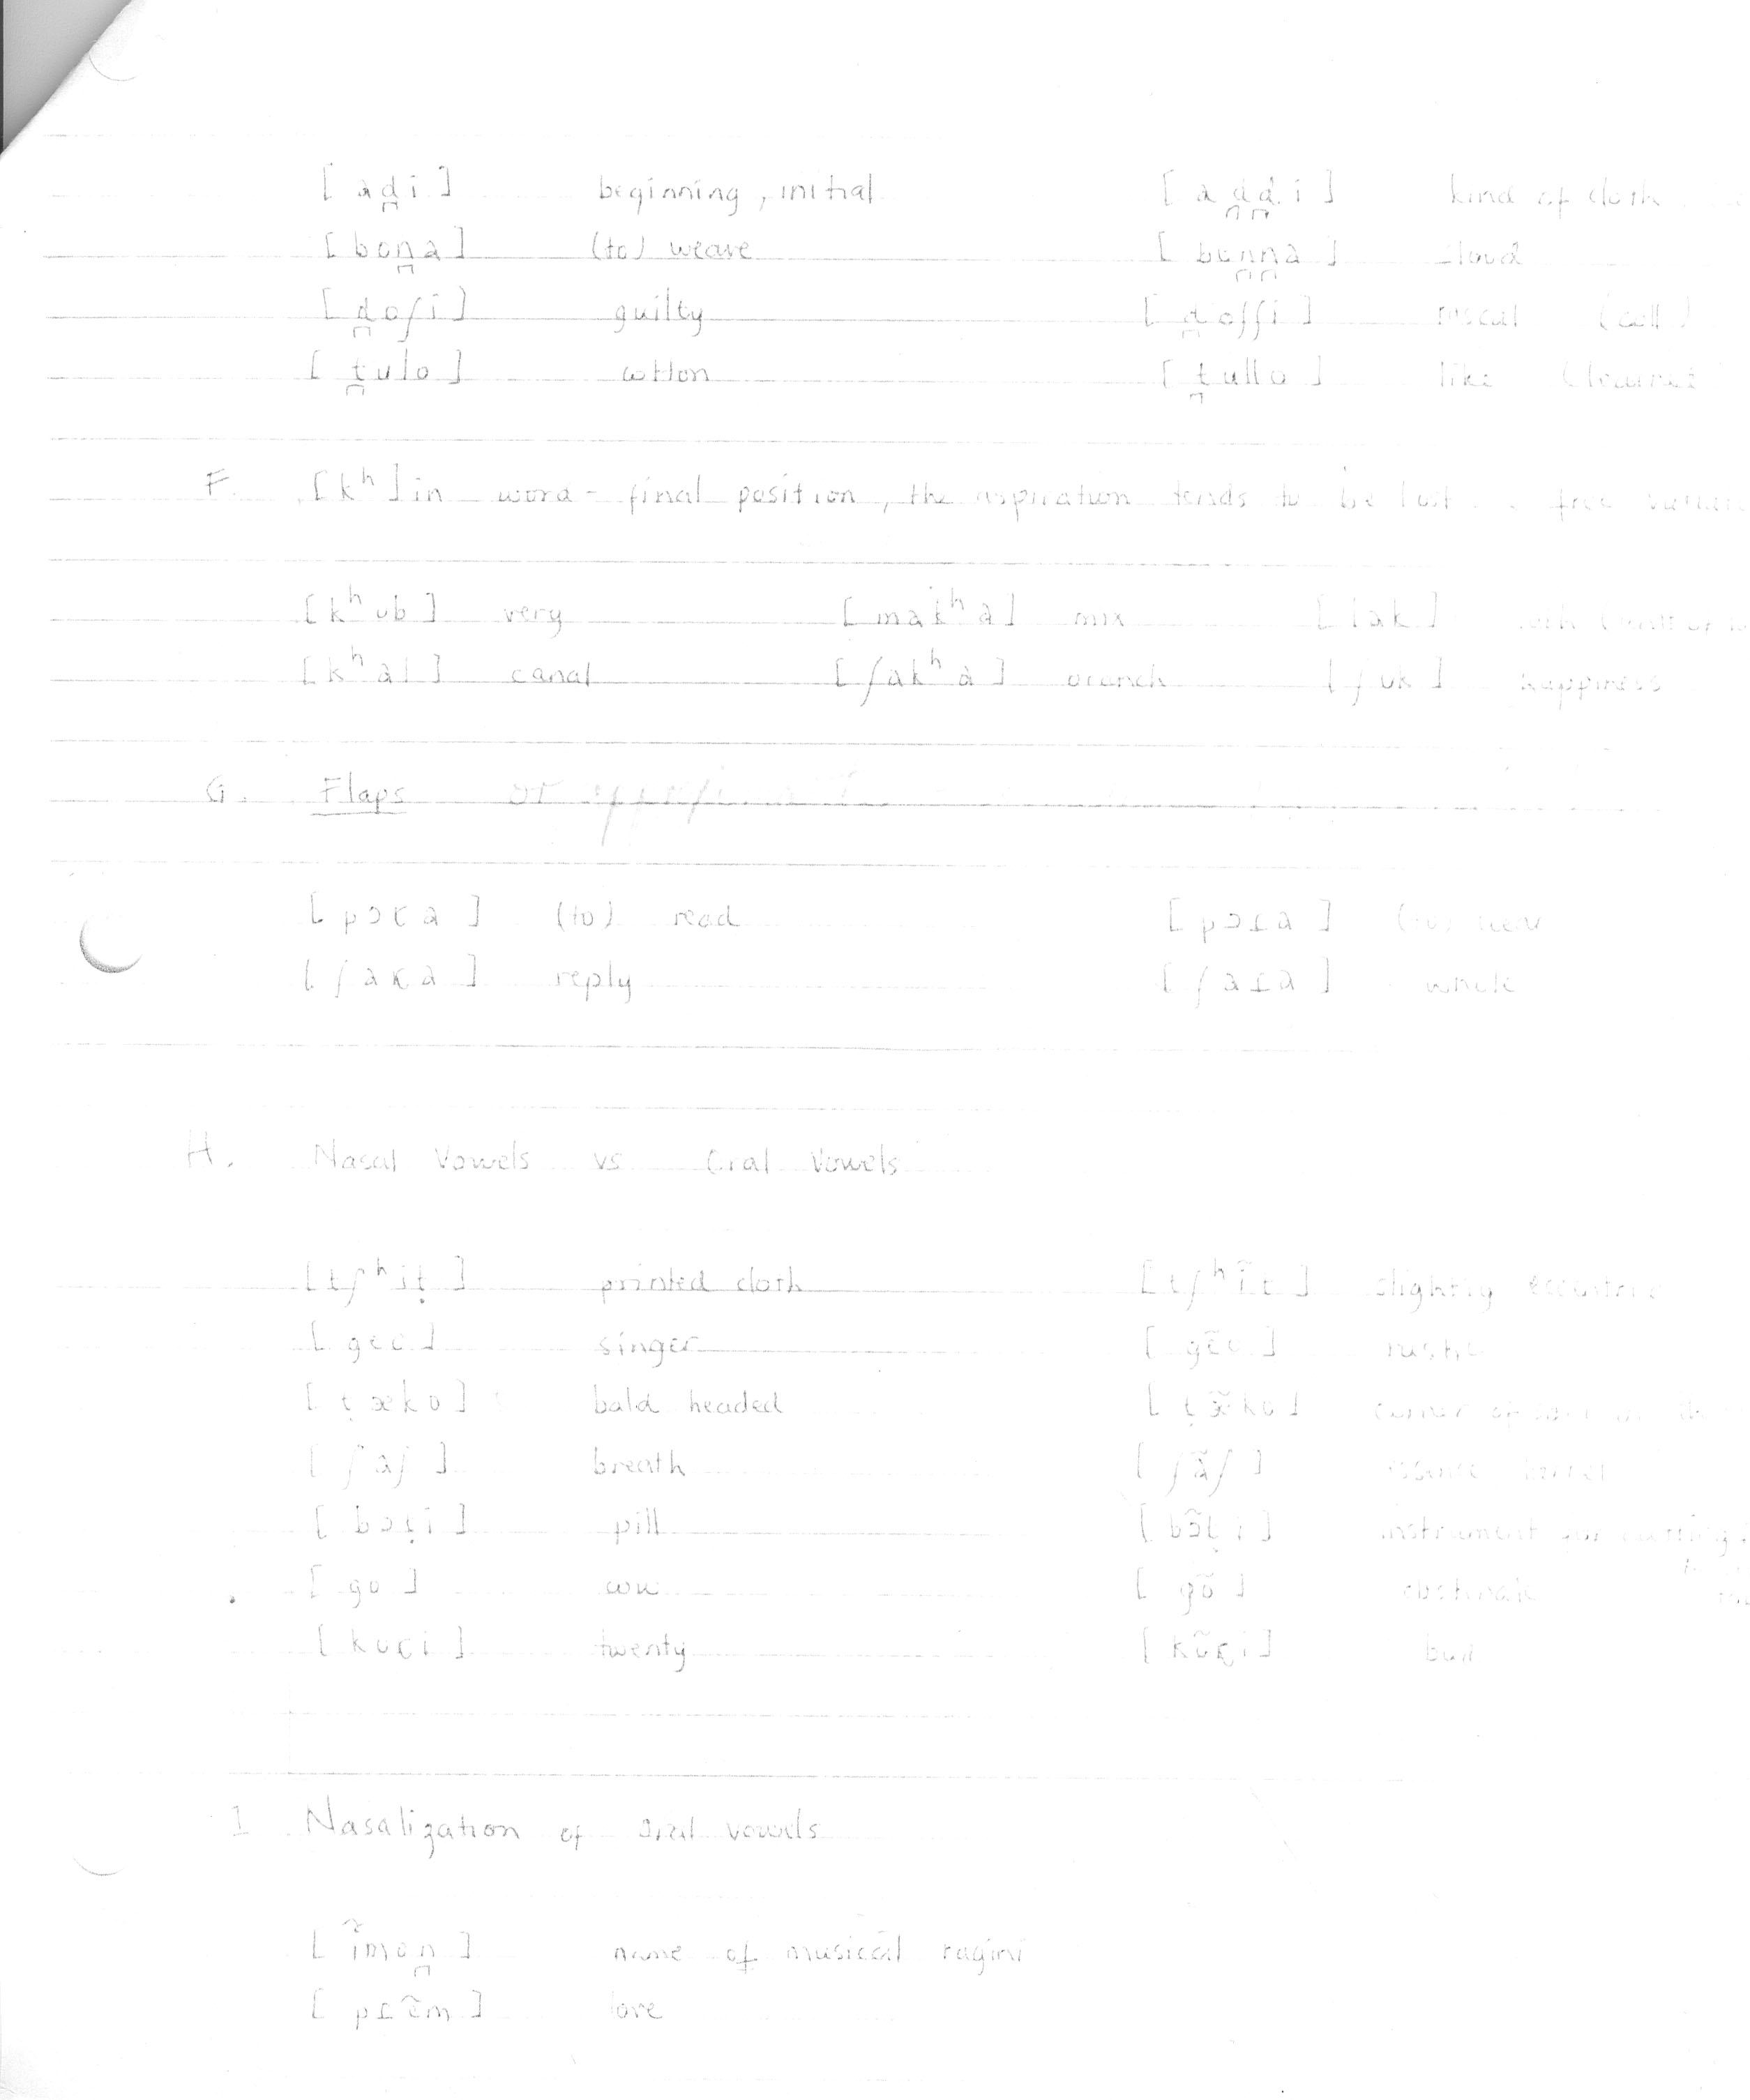 [ad̪i] beginning, initial [ad̪d̪i] kind of cloth
[bon̪a] (to) weave [bon̪n̪a] cloud
[d̪oʃi] guilty [d̪oʃʃi] rascal (coll)
[t̪ulo] cotton [t̪ullo] like
F. [kʰ] in word-final position, the aspiration tends to be lost free
[kʰub] very [makʰa] mix [lak]
[kʰal] canal [ʃakʰa] branch [ʃuk] happiness
G. Flaps or
[pɔɽa] (to) read [pɔɾa] (to) wear
[ʃaɽa] reply [ʃaɾa] whole
H. Nasal Vowels vs Oral Vowels
[tʃʰiṭ] printed cloth [tʃʰĩṭ] slightly eccentric
[geo] singer [gẽo] rustic
[ṭæko] bald headed [ṭæ̃ko] corner of
[ʃaʃ] breath [ʃãʃ]
[bɔṭi] pill [bɔ̃ṭi] instrument for cutting
[go] cow [gõ] obstinate
[kuɽi] twenty [kũɽi] bud
I Nasalization of oral vowels
[ĩmon̪] name of musical ragini
[pɾẽm] love